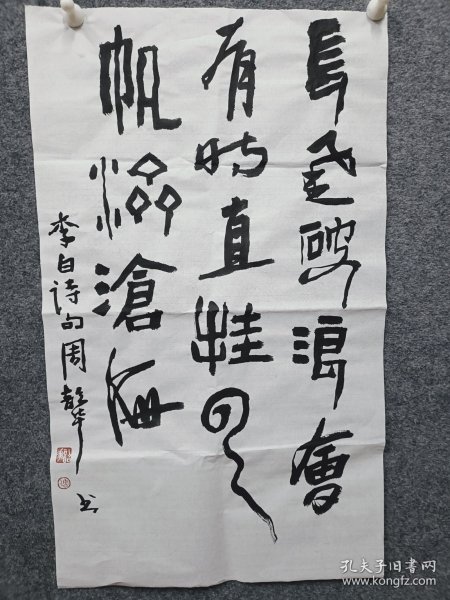 長風破浪會
有時直挂雲
帆濟滄海
李白詩句周韶華书
孔夫子旧书网
www.kongfz.com